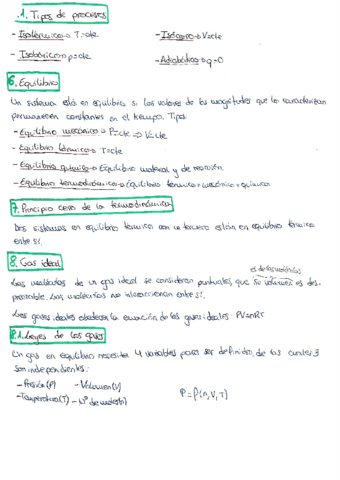 .1. Tipos de procesos
- Isotérmico → T=cte - Isócoro → V=cte
- Isobárico → p=cte - Adiabático → q=0
6. Equilibrio
Un sistema está en equilibrio si los valores de las magnitudes que lo caracterizan
permanecen constantes en el tiempo. Tipos
- Equilibrio mecánico → P=cte → V=cte
- Equilibrio térmico → T=cte
- Equilibrio químico → Equilibrio material y de reacción
- Equilibrio termodinámico → Equilibrio térmico + mecánico + químico
7. Principio cero de la termodinámica
Dos sistemas en equilibrio térmico con un tercero están en equilibrio térmico
entre sí.
8. Gas ideal
Las moléculas de un gas ideal se consideran puntuales, que su volumen es des-
preciable. Las moléculas no interaccionan entre sí.
Los gases ideales obedecen la ecuación de los gases ideales: PV=nRT
8.1. Leyes de los gases
Un gas en equilibrio necesita 4 variables para ser definido, de las cuales 3
son independientes:
- Presión (P) - Volumen (V)
- Temperatura (T) - Nº de moles (n) P = f(n,V,T)